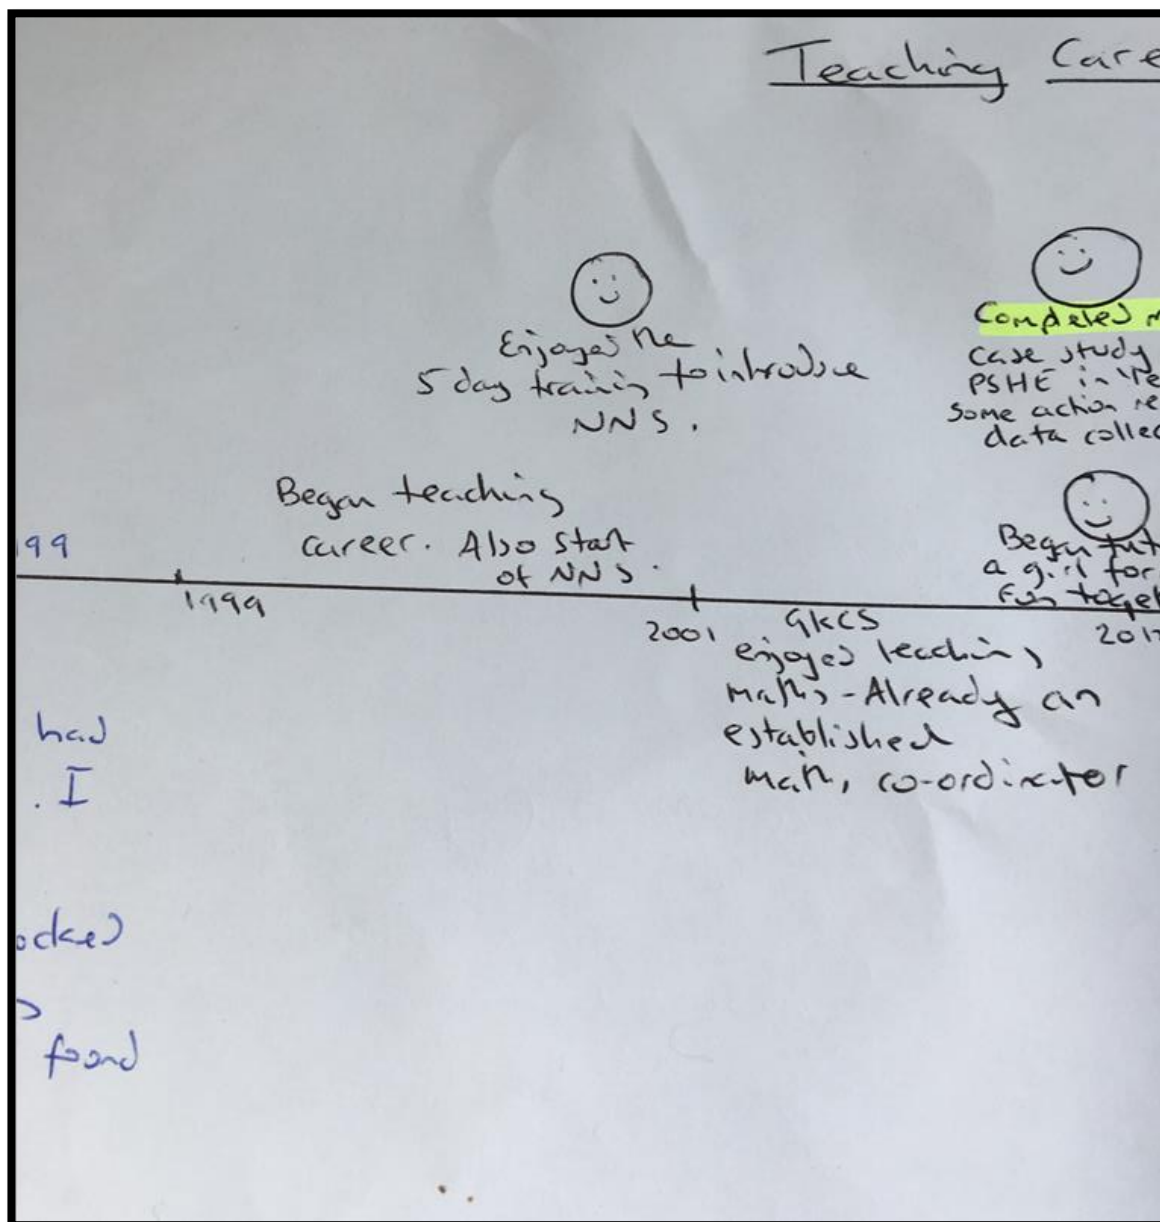 Teaching Care
Enjoyed the
5 day training to introduce
NNS.
Completed m
case study
PSHE in
some action re
data collec
Began teaching
career. Also start
of NNS.
Began tut
a girl for
fun together
199
1999
2001
201
GKCS
enjoyed teaching
maths - Already an
established
maths co-ordinator
had
. I
ocked
found